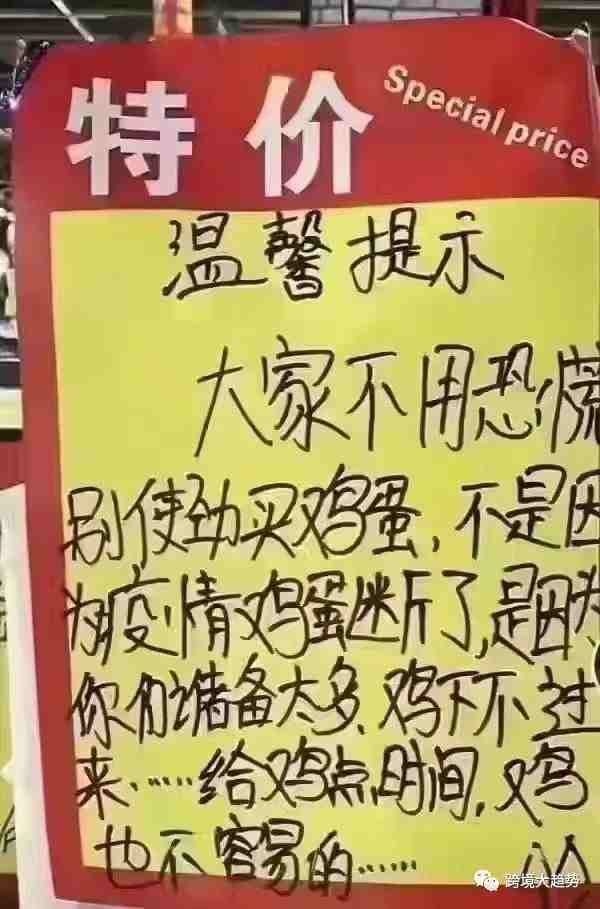 特价
Special price
温馨提示
大家不用恐慌
别使劲买鸡蛋,不是因
为疫情鸡蛋断了,是因为
你们储备太多,鸡下不过
来……给鸡点时间,鸡
也不容易的……
跨境大趋势